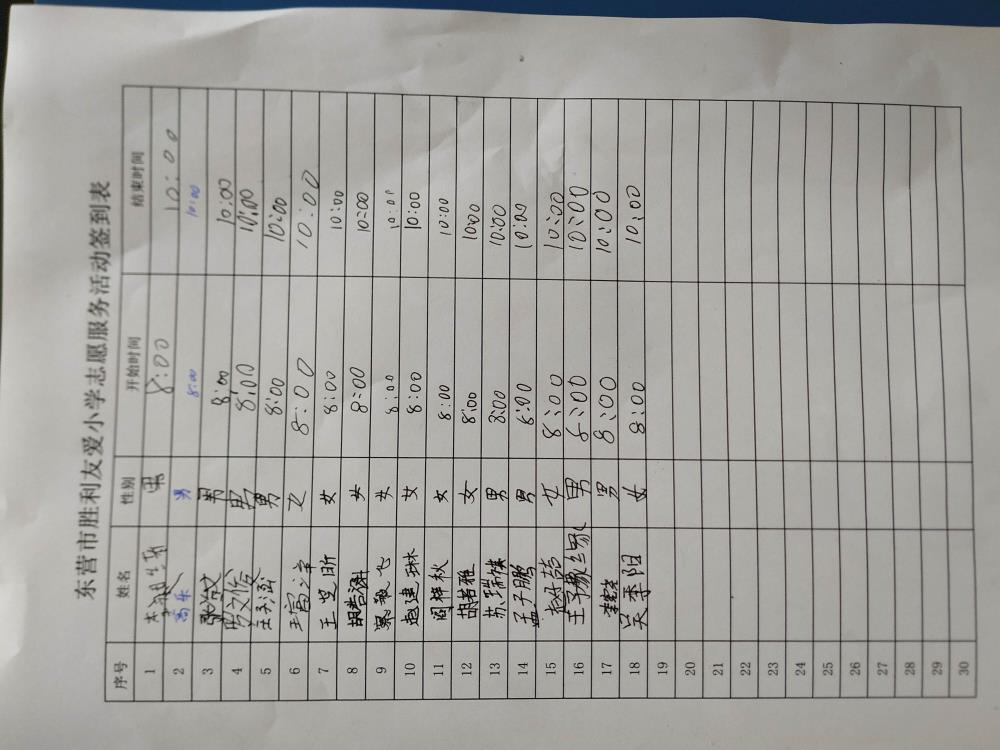 东营市胜利友爱小学志愿服务活动签到表
序号 姓名 性别 开始时间 结束时间
1 男 8:00 10:00
2 高乐 男 8:00 10:00
3 男 8:00 10:00
4 男 8:00 10:00
5 男 8:00 10:00
6 女 8:00 10:00
7 王艺昕 女 8:00 10:00
8 女 8:00 10:00
9 女 8:00 10:00
10 赵建琳 女 8:00 10:00
11 女 8:00 10:00
12 胡若雅 女 8:00 10:00
13 苏瑞 男 8:00 10:00
14 孟子鹏 男 8:00 10:00
15 女 8:00 10:00
16 王 男 8:00 10:00
17 男 8:00 10:00
18 吴季阳 女 8:00 10:00
19
20
21
22
23
24
25
26
27
28
29
30